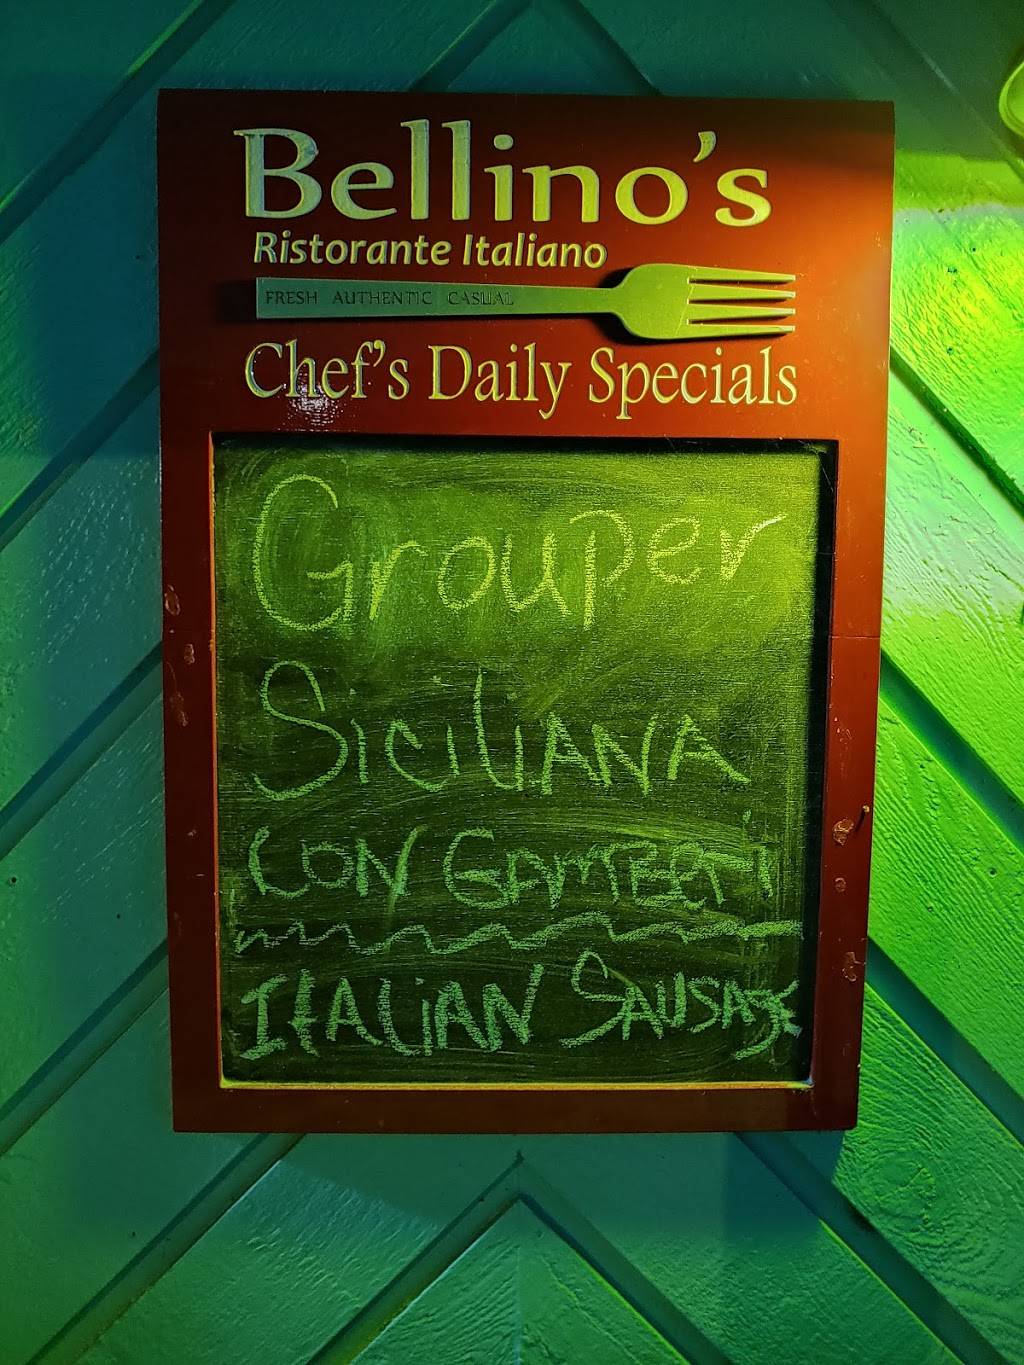 Bellino's
Ristorante Italiano
FRESH AUTHENTIC CASUAL
Chef's Daily Specials
Grouper
SiciLiANA
CON GAMBERI
ITALiAN SAUSAGE